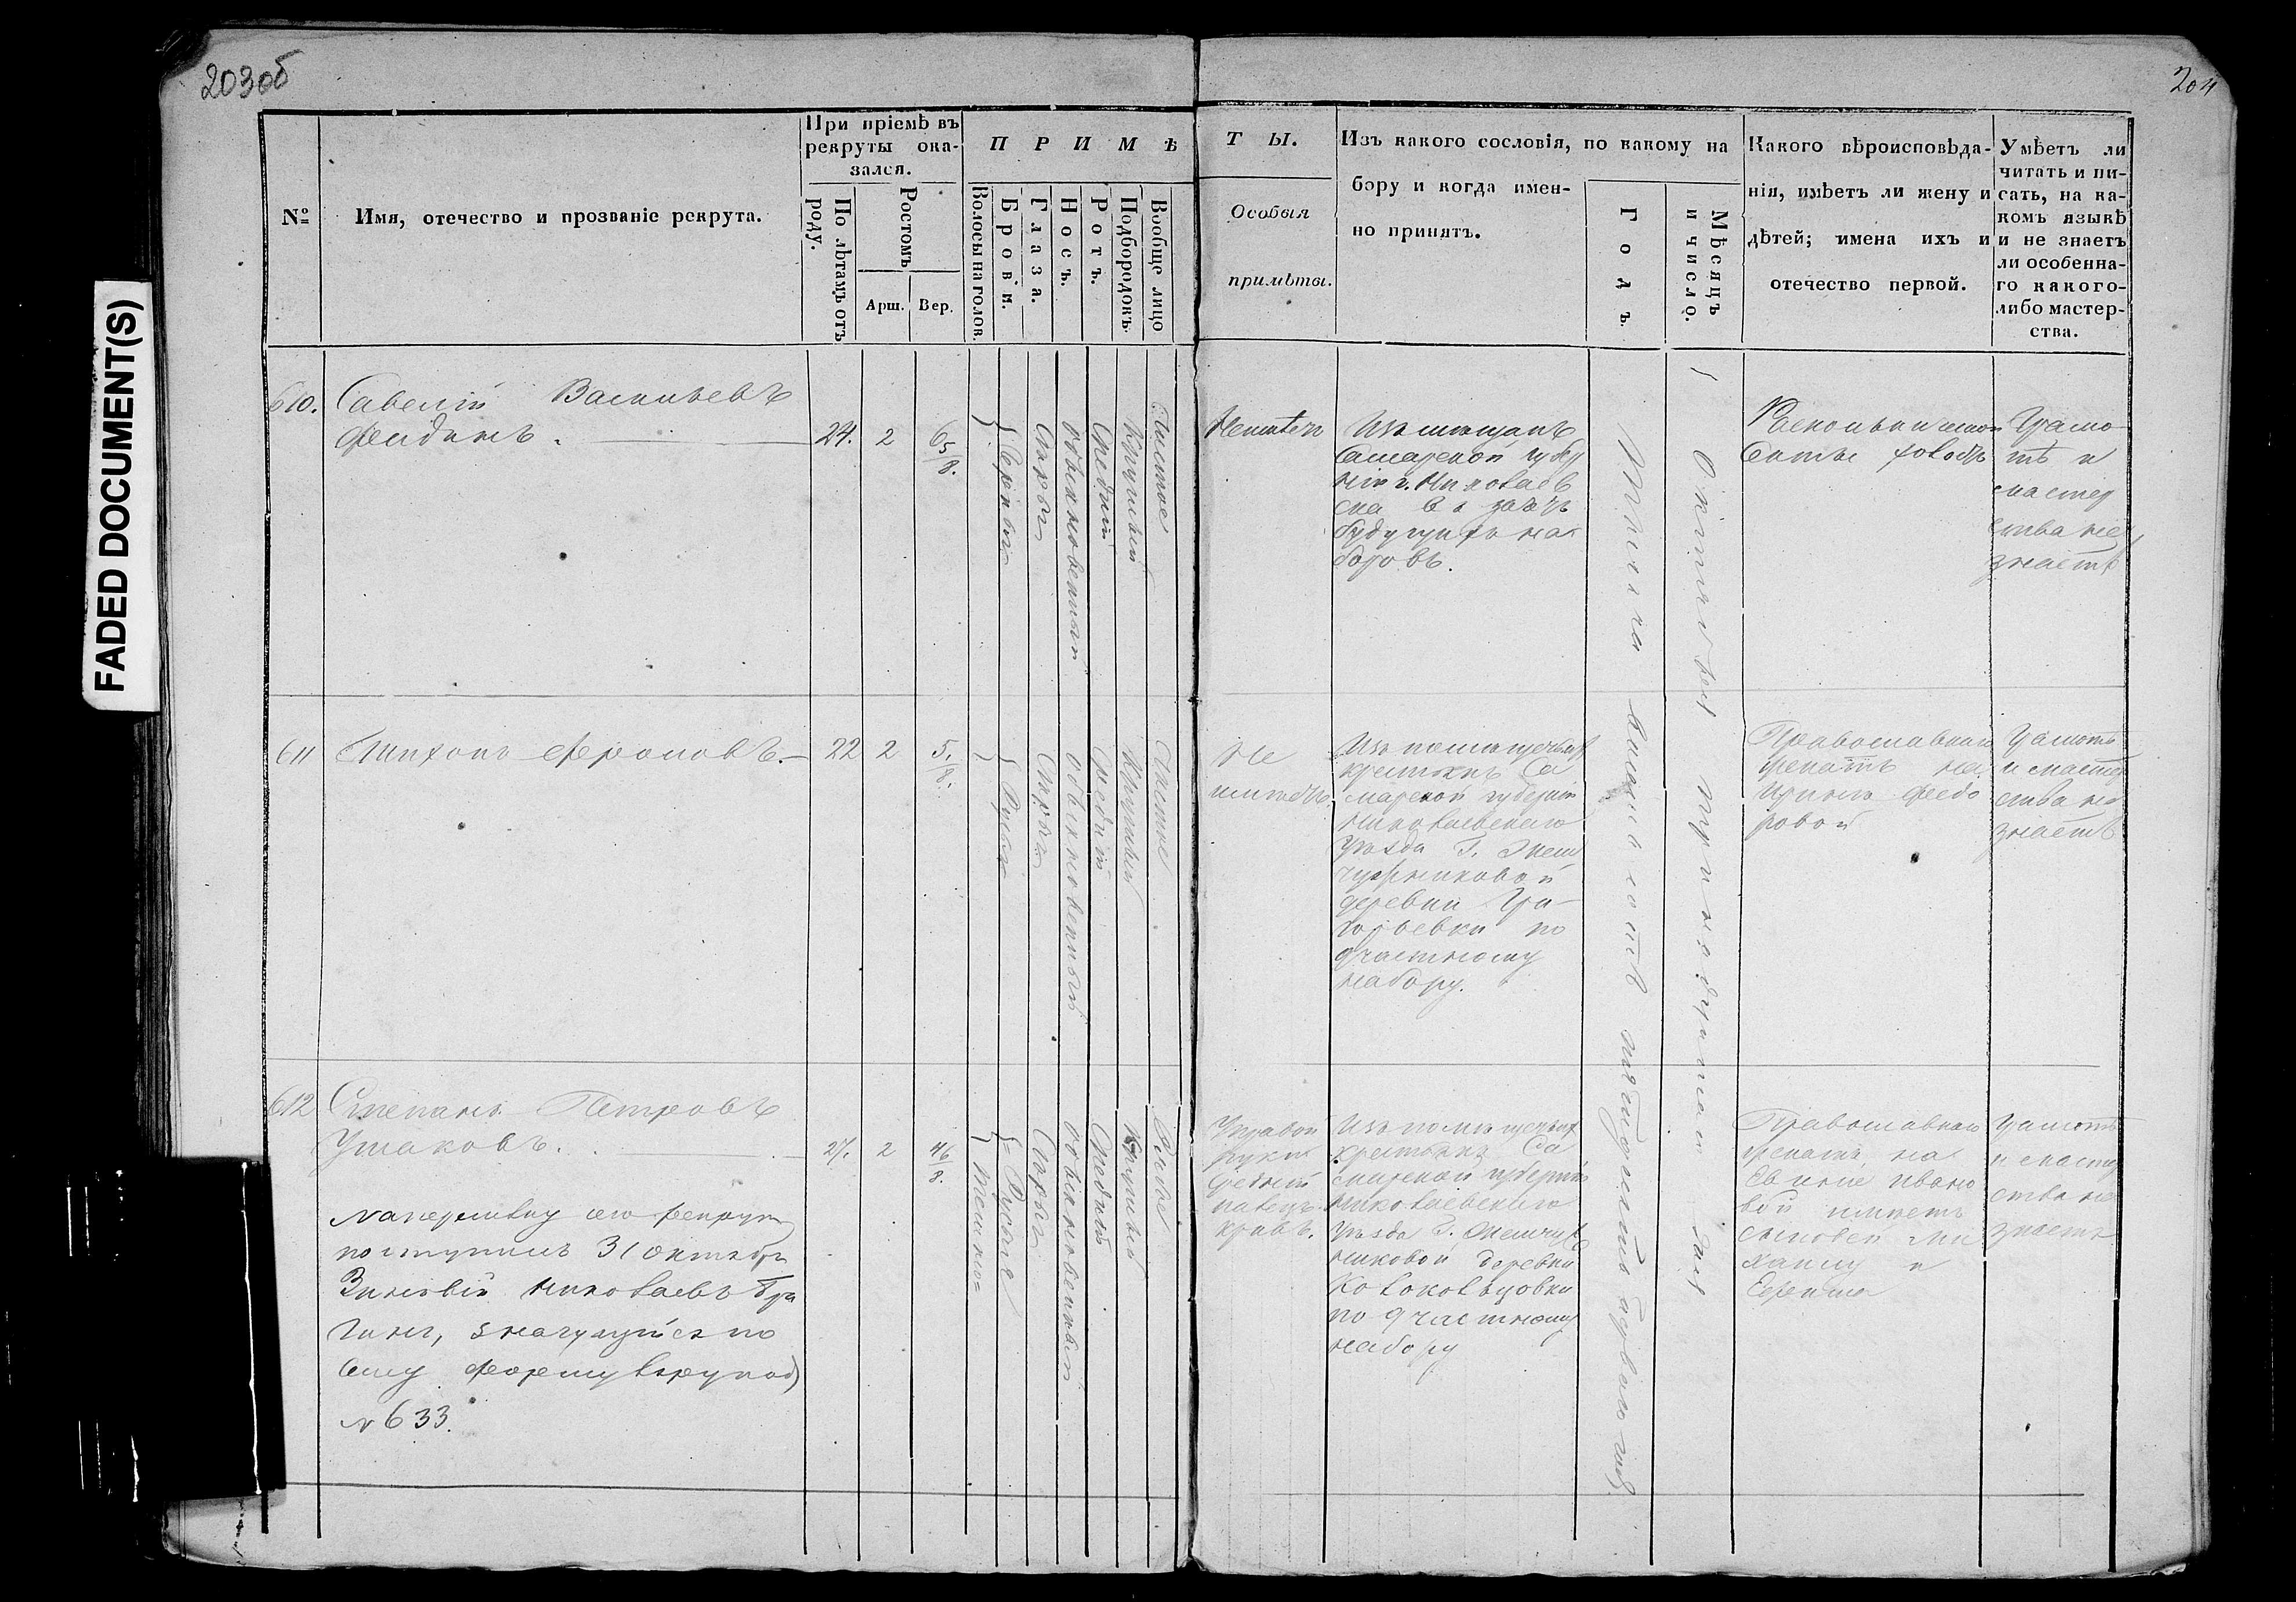 203об
204
FADED DOCUMENT(S)
№
Имя, отечество и прозваніе рекрута.
При пріемѣ въ
рекруты ока-
зался.
По лѣтамъ отъ
роду.
Ростомъ
Арш.
Вер.
ПРИМѢ
Волосы на голов.
Брови.
Глаза.
Носъ.
Ротъ.
Подбородокъ.
Вообще лицо
ТЫ.
Особыя
примѣты.
Изъ какого сословія, по какому на
бору и когда имен-
но принятъ.
Годъ.
Мѣсяцъ
и число.
Какого вѣроисповѣда-
нія, имѣетъ ли жену и
дѣтей; имена ихъ и
отечество первой.
Умѣетъ ли
читать и пи-
сать, на ка-
комъ языкѣ
и не знаетъ
ли особенна-
го какого-
либо мастер-
ства.
610.
Савелій Васильевъ
24. 2 6 5/8.
Черные
Сѣрые
обыкновенный
Средній
Круглый
Чистое
Неимѣетъ
Изъ мѣщанъ
Самарской губер
ніи г. Николаев
ска въ зачетъ
будущихъ на
боровъ.
Раскольнической
Секты холостъ
Грамо
тѣ и
мастер
ства не
знаетъ
Тысяча восемьсотъ пятьдесятъ перваго года
Октября тринадцатаго дня
611
Тихонъ Фроловъ.
22 2 5. /8.
Русые
Сѣрые
обыкновенный
Средній
Круглый
Чистое
Не
имѣетъ.
Изъ помѣщичьихъ
крестьянъ Са
марской губерніи
Николаевскаго
Уѣзда Г. Жем
чужниковой
деревни Гри-
горьевки по
9 частному
набору.
Православнаго
женатъ на
Иринѣ Федо
ровой
Грамотѣ
и мастер
ства не
знаетъ
612
Степанъ Петровъ
Ушаковъ.
27. 2 4 6/8.
Темно=
Русые
Сѣрые
обыкновенный
Средній
Круглый
Рябое
У правой
руки
средній
палецъ
кривъ.
Изъ помѣщичьихъ
крестьянъ Са
марской губерніи
Николаевскаго
Уѣзда Г. Жемчуж
никовой деревни
Колокольцовки
по 9 частному
набору
Православнаго
женатъ на
Ивано
вой имѣетъ
сыновей Ми
хаилу и
Ефима
Грамотѣ
и мастер
ства не
знаетъ
На перемѣну его рекрута
поступилъ 31 Октября
Зиновій Николаевъ
значущійся по
сему форму
№ 633.